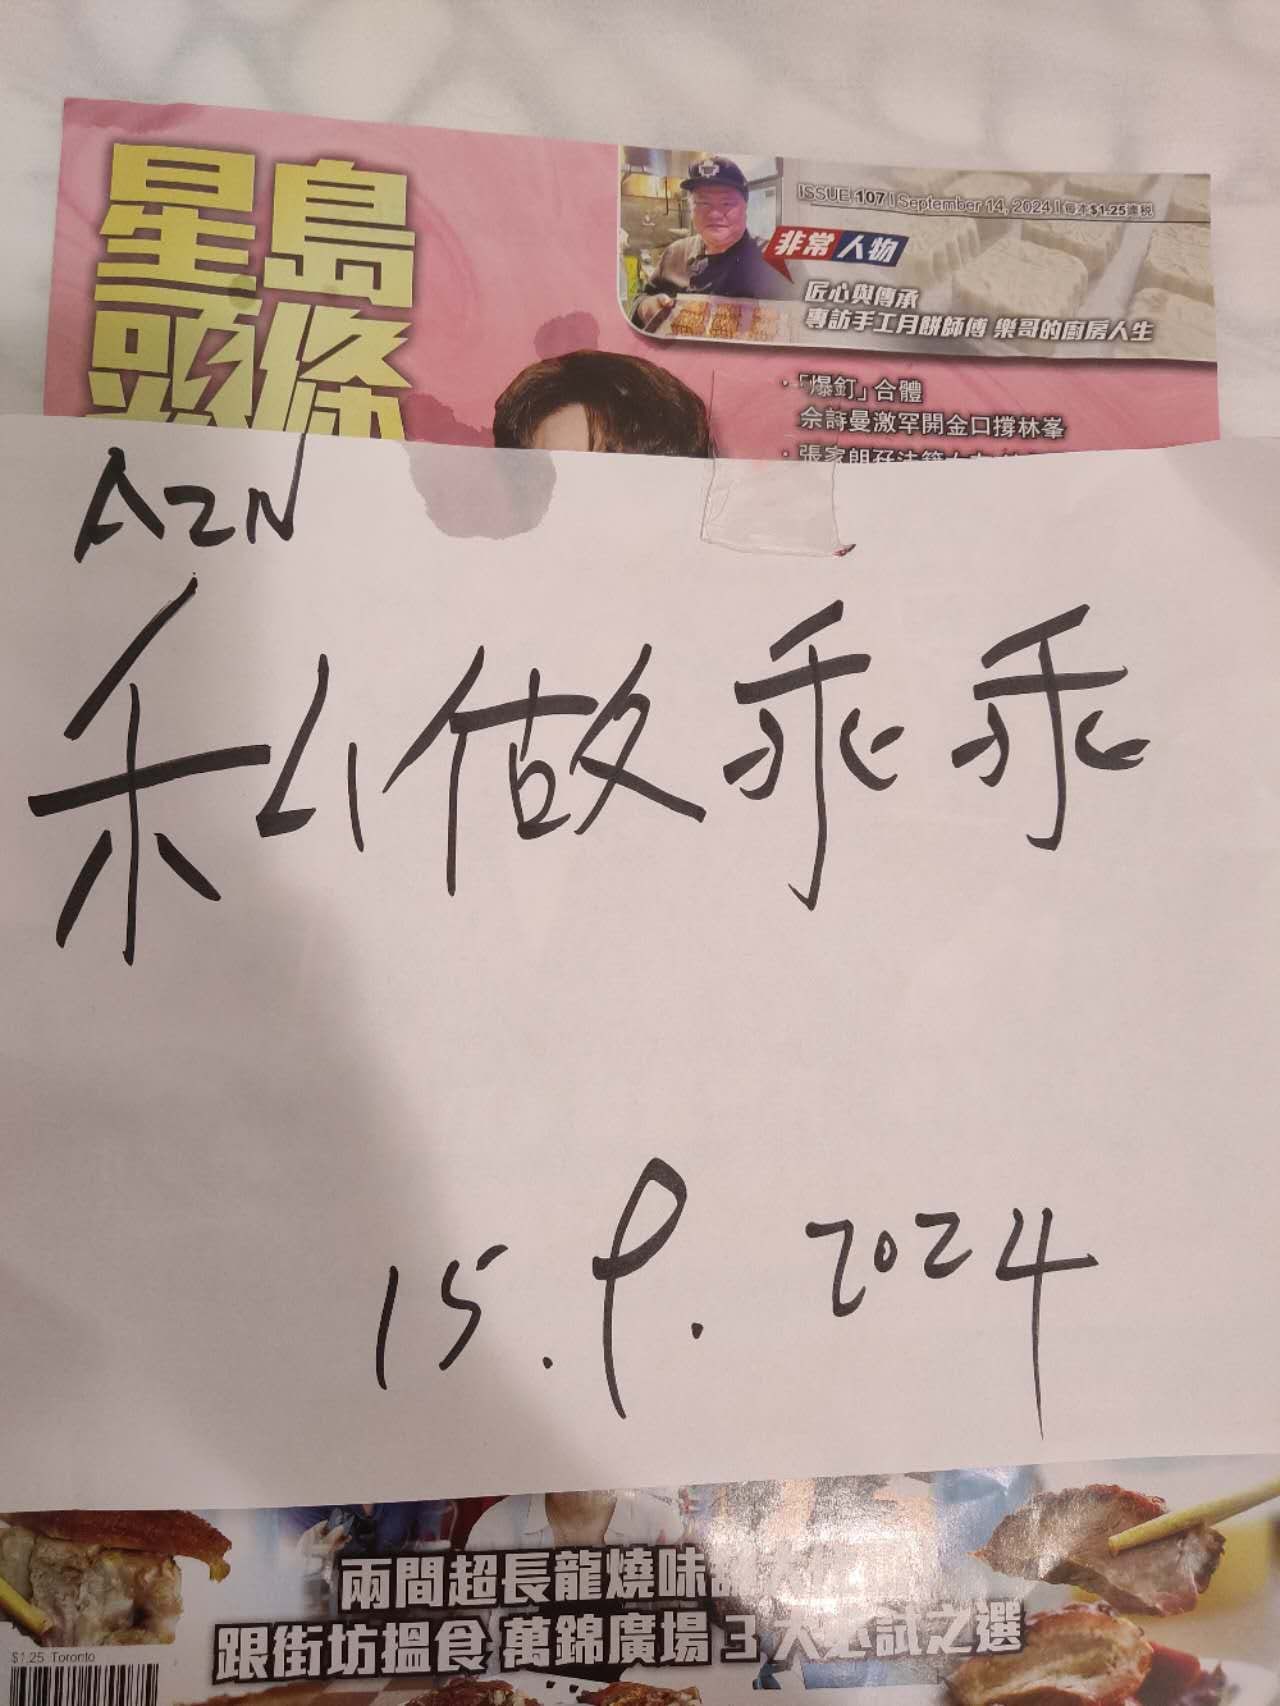 星島
頭條
ISSUE 107 | September 14, 2024 | 每本$1.25連稅
非常人物
匠心與傳承
專訪手工月餅師傅 樂哥的廚房人生
·「爆釘」合體
佘詩曼激罕開金口撐林峯
· 張家朗
AZN
私做乖乖
15.9.2024
兩間超長龍燒味
跟街坊搵食 萬錦廣場 3 大必試之選
$1.25 Toronto